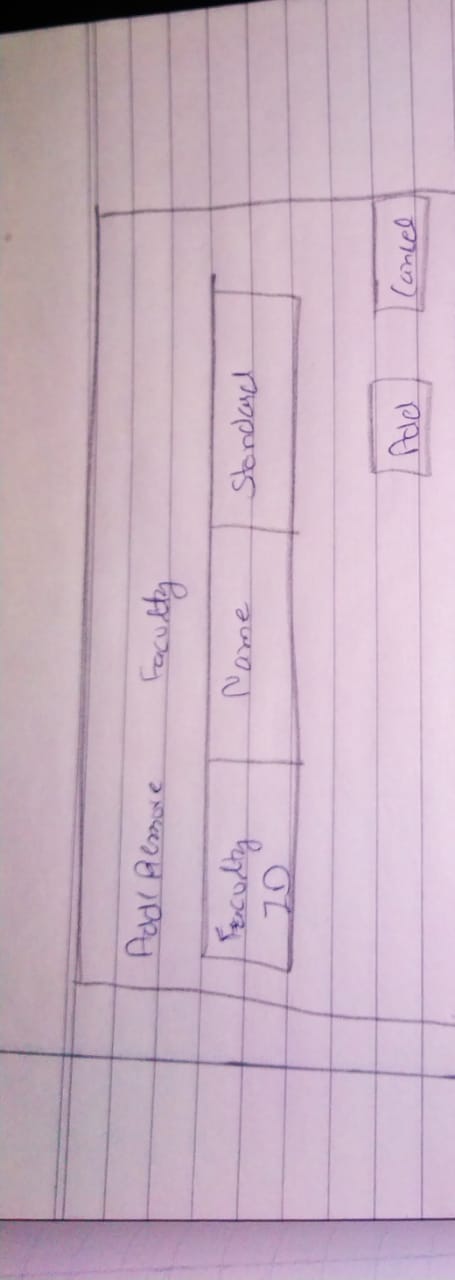 Add/Remove Faculty
Faculty ID Name Standard
Add Cancel